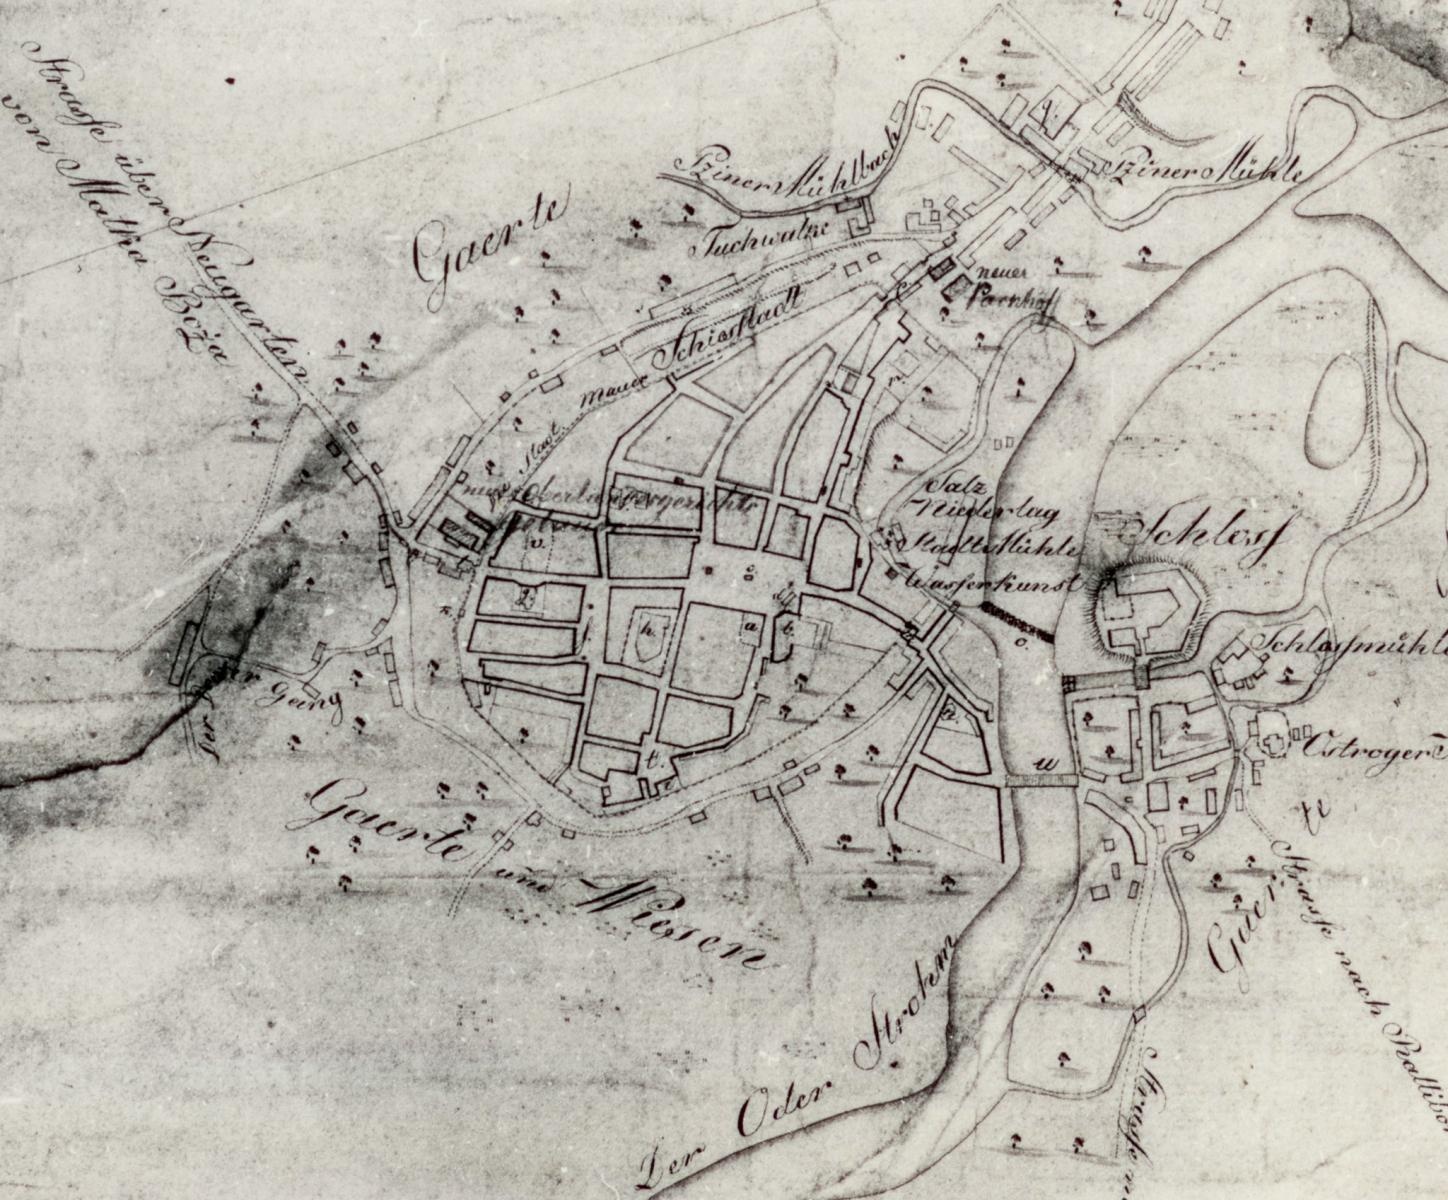 Strasse über Neugarten
von Matka Boża
Gaerte
Psiner Mühlbach
Tuchwalke
Psiner Mühle
neuer
Packhof
Schiesstadt
Stadt mauer
neues Oberlandesgericht
Salz
Niederlag
Stadt Mühle
Wasserkunst
Schloss
Schlossmühle
Ostroger
Gaerte
und Wiesen
Gaerte
Strasse nach Rattibor
Der Oder Strohm
Strasse
a
b.
h.
t.
v.
o.
u
r.
q